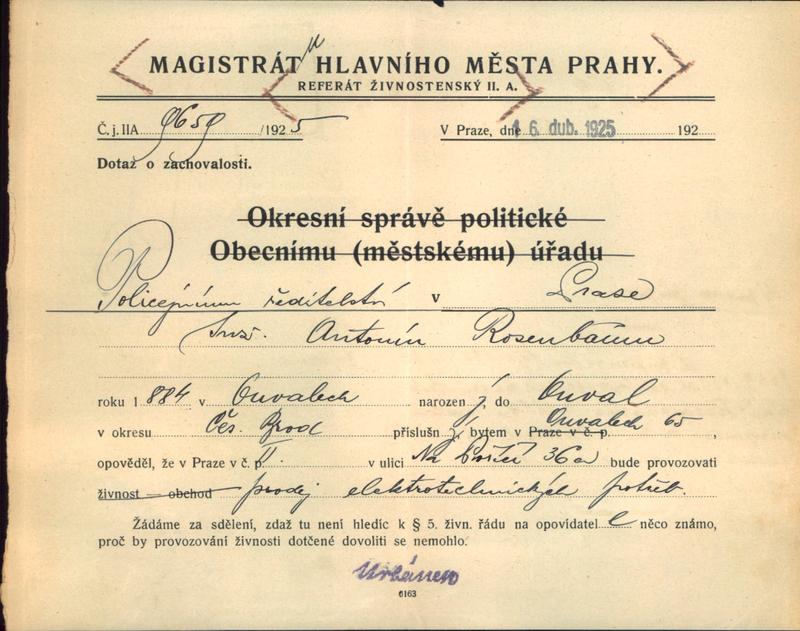 MAGISTRÁTU HLAVNÍHO MĚSTA PRAHY.
REFERÁT ŽIVNOSTENSKÝ II. A.
Č. j. IIA 9659 /1925
V Praze, dne 16. dub. 1925 192
Dotaz o zachovalosti.
Okresní správě politické
Obecnímu (městskému) úřadu
Policejnímu ředitelství v Praze
Inž. Antonín Rosenbaum
roku 1884 v Ouvalech narozený do Ouval
v okresu Čes. Brod příslušný, bytem v Praze v č. p. Ouvalech 65,
opověděl, že v Praze v č. p. II. v ulici Na Poříčí 36a bude provozovati
živnost — obchod prodej elektrotechnických potřeb.
Žádáme za sdělení, zdaž tu není hledíc k § 5. živn. řádu na opovídatele něco známo,
proč by provozování živnosti dotčené dovoliti se nemohlo.
Urbánek
6163